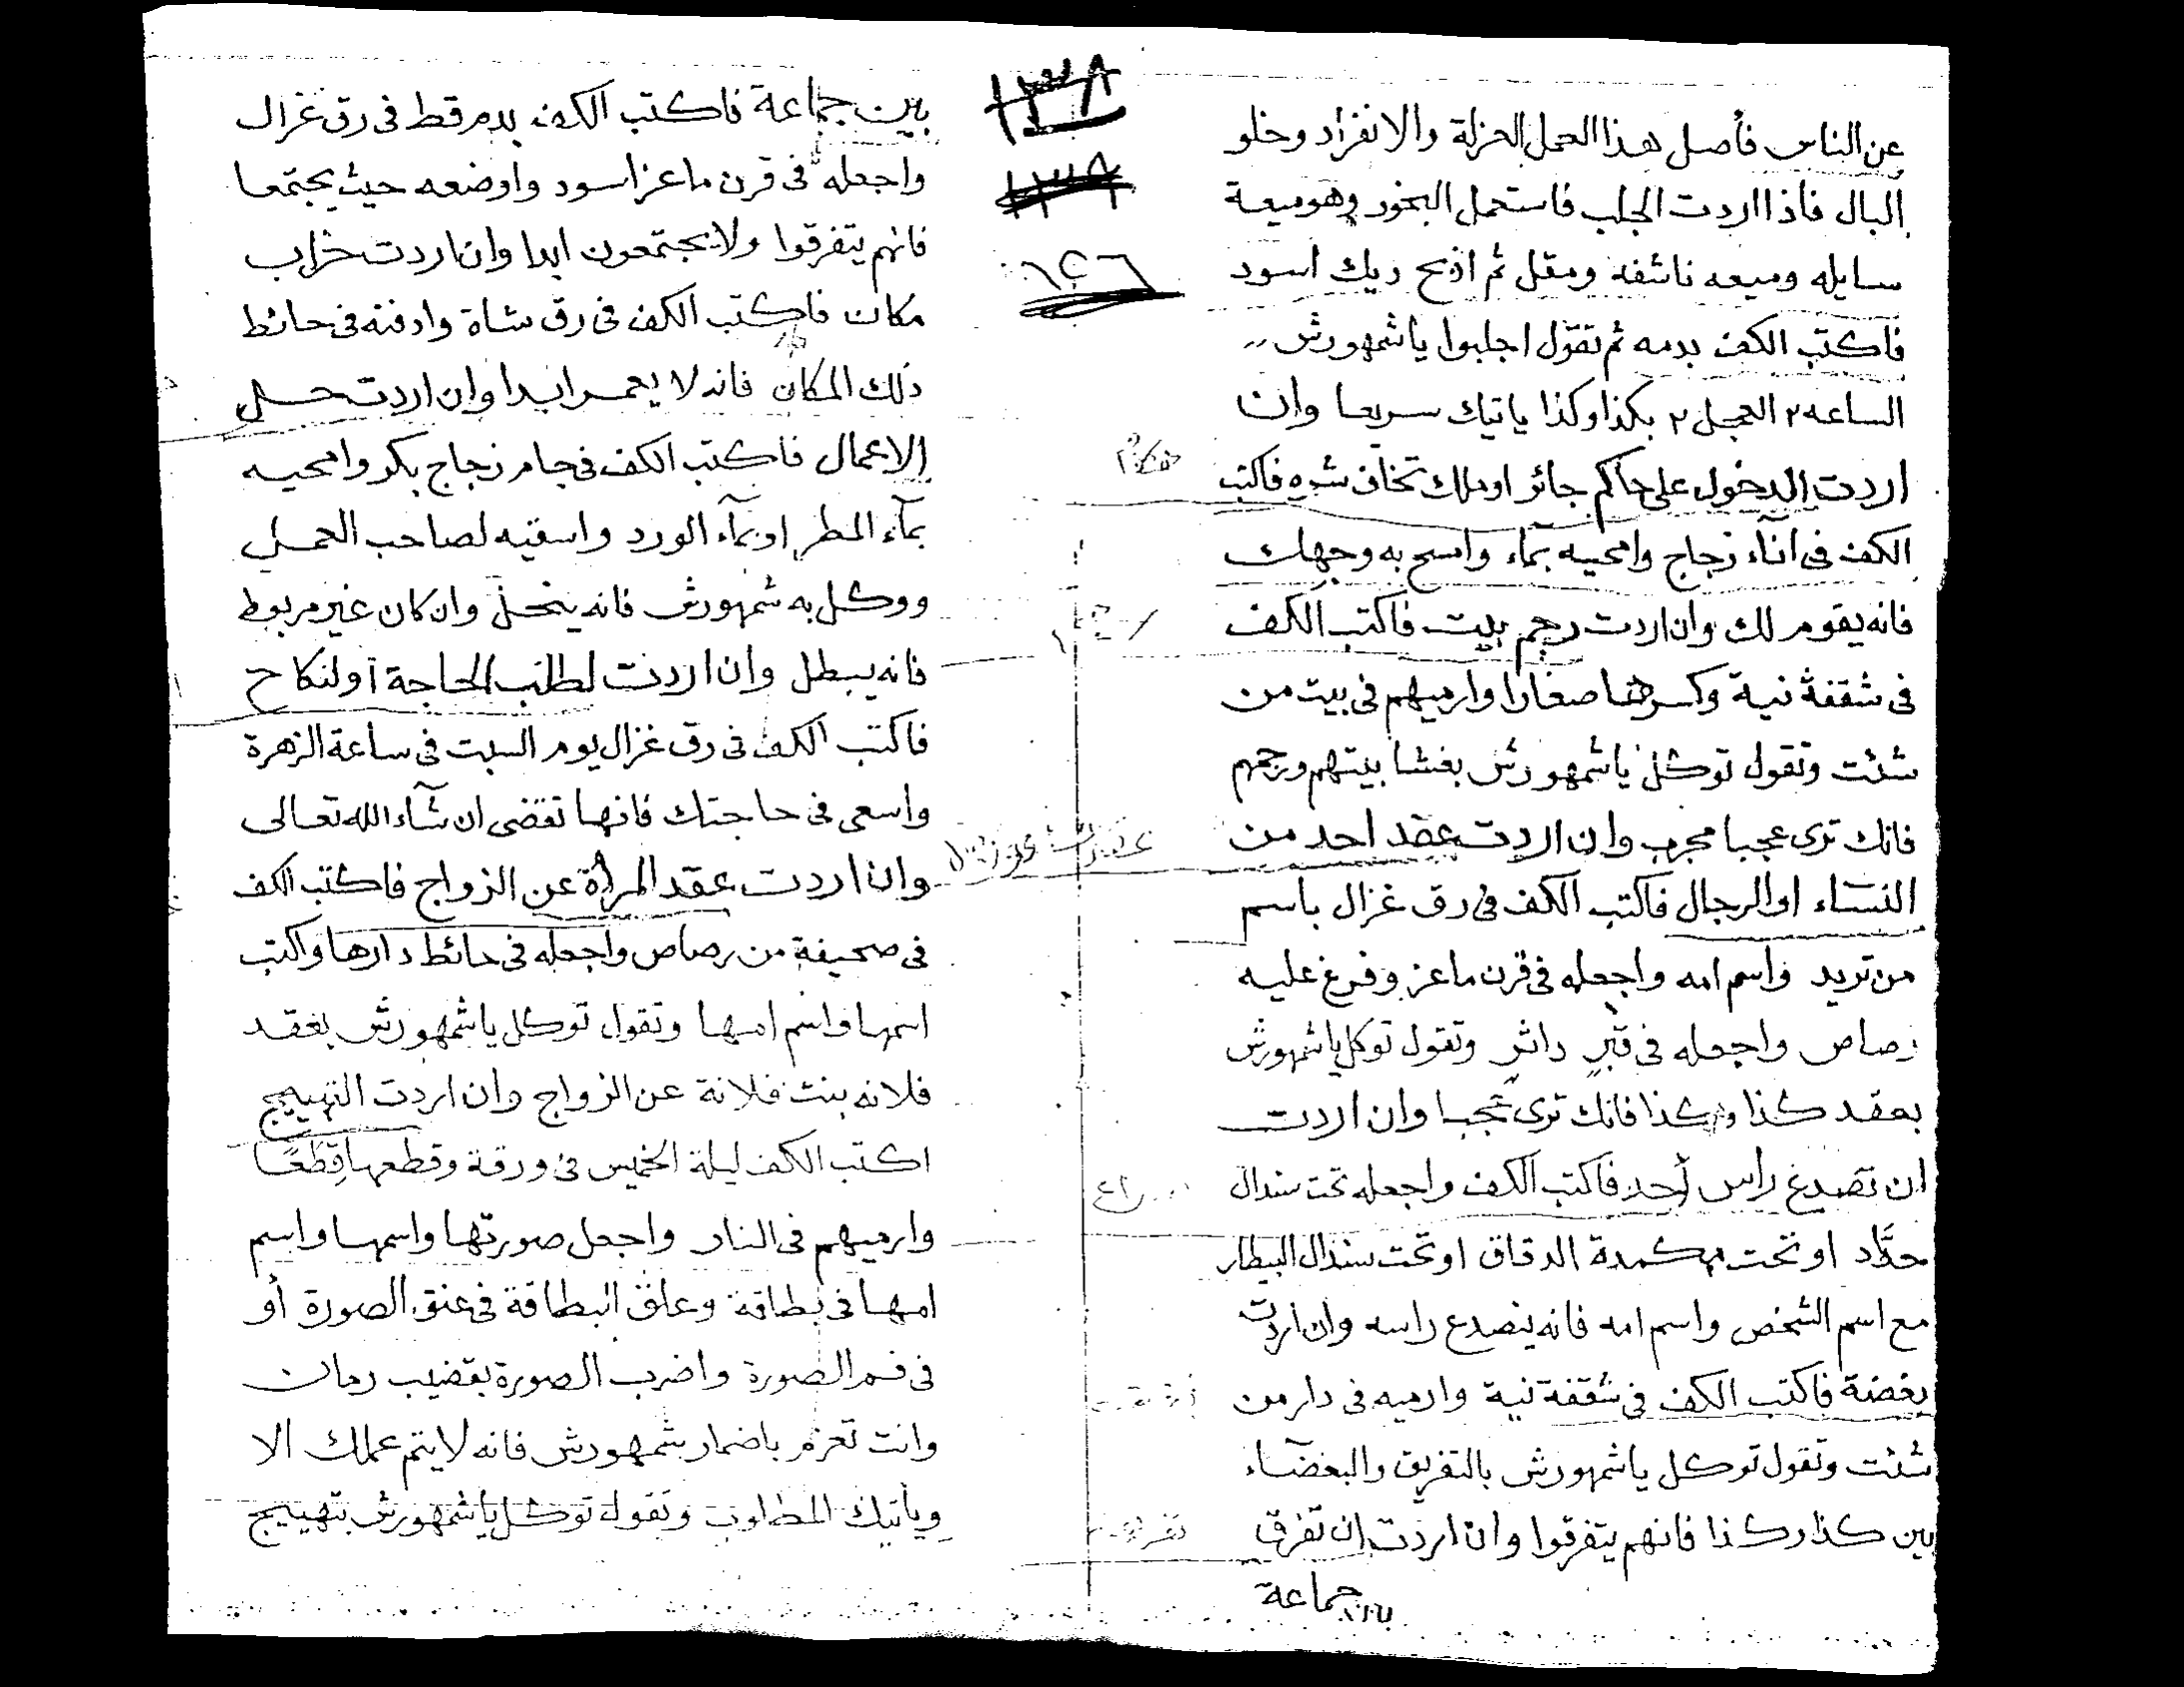 عن الناس فأصل هذا العمل العزلة والانفراد وخلو
البال فاذا اردت الجلب فاستعمل البخور وهو ميعة
سايله وميعه ناشفه ومقل ثم اذبح ديك اسود
فاكتب الكف بدمه ثم تقول اجلبوا ياشمهورش
الساعه ٢ العجل ٢ بكذا وكذا ياتيك سريعا وان
اردت الدخول على حاكم جائر او ملك تخاف شره فاكتب
الكف فى آناء زجاج وامحيه بمآء وامسح به وجهك
فانه يقوم لك وان اردت رجم بيت فاكتب الكف
فى شقفة نية وكسرها صغارا وارميهم فى بيت من
شئت وتقول توكل ياشمهورش بغشا بيتهم ورجمهم
فانك ترى عجبا مجرب وان اردت عقد احد من
النساء او الرجال فاكتب الكف فى رق غزال باسم
من تريد واسم امه واجعله فى قرن ماعز وفرغ عليه
رصاص واجعله فى قبر داثر وتقول توكل ياشمهورش
بعقد كذا وكذا فانك ترى عجبا وان اردت
ان تصدغ راس أحد فاكتب الكف واجعله تحت سندال
حدّاد او تحت مكمدة الدقاق او تحت سندال البيطار
مع اسم الشخص واسم امه فانه ينصدع راسه وان اردت
بغضة فاكتب الكف فى شقفة نية وارميه فى دار من
شئت وتقول توكل ياشمهورش بالتفريق والبغضآء
بين كذا وكذا فانهم يتفرقوا وان اردت ان تفرق
بين جماعة
١٣٨
١٣٨
١٢٦
بين جماعة فاكتب الكف بدم قط فى رق غزال
واجعله فى قرن ماعز اسود واوضعه حيث يجتمعا
فانهم يتفرقوا ولا يجتمعون ابدا وان اردت خراب
مكان فاكتب الكف فى رق شاة وادفنه فى حائط
ذلك المكان فانه لا يعمر ابدا وان اردت حل
الاعمال فاكتب الكف فى جام زجاج بكر وامحيه
بمآء المطر او بمآء الورد واسقيه لصاحب العمل
ووكل به شمهورش فانه ينحل وان كان غير مربوط
فانه يبطل وان اردت لطلب الحاجة أو لنكاح
فاكتب الكف فى رق غزال يوم السبت فى ساعة الزهرة
واسعى فى حاجتك فانها تقضى ان شآء الله تعالى
وان اردت عقد المرأة عن الزواج فاكتب الكف
فى صحيفة من رصاص واجعله فى حائط دارها واكتب
اسمها واسم امها وتقول توكل ياشمهورش بعقد
فلانه بنت فلانة عن الزواج وان اردت التهييج
اكتب الكف ليلة الخميس فى ورقة وقطعها قِطَعًا
وارميهم فى النار واجعل صورتها واسمها واسم
امها فى بطاقة وعلق البطاقة فى عنق الصورة أو
فى فم الصورة واضرب الصورة بقضيب رمان
وانت تعزم باضمار شمهورش فانه لا يتم عملك الا
ويأتيك المطلوب وتقول توكل ياشمهورش بتهييج